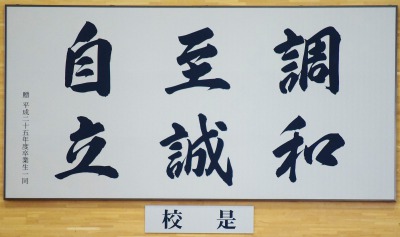 調和
至誠
自立
贈 平成二十五年度卒業生一同
校是